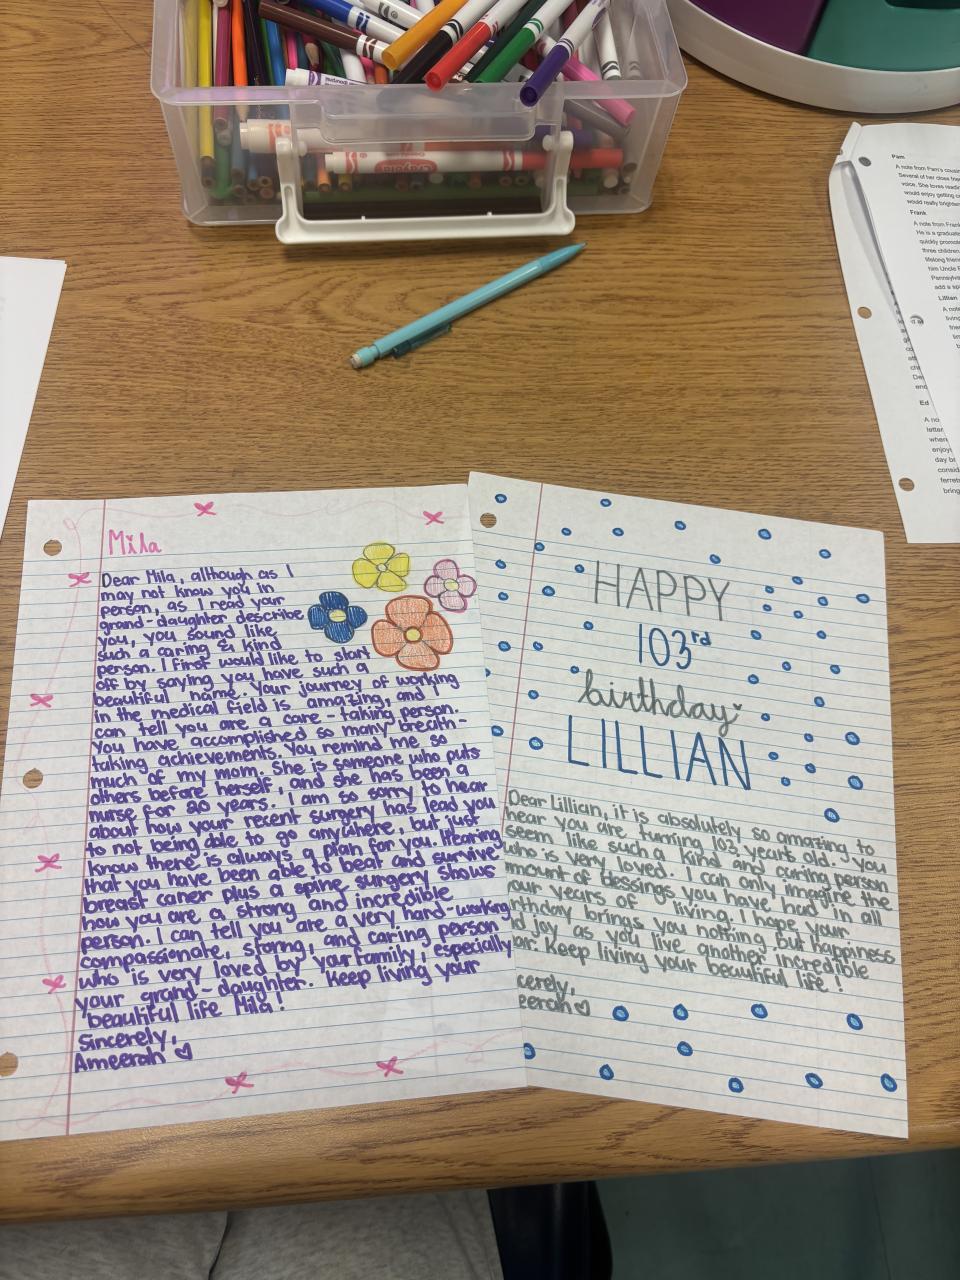 Crayola
Pam
A note from Pam's
Several of her close
voice. She loves
would enjoy getting
would really
Frank
A note from Frank
He is a
quickly
three children
lifelong
him Uncle
add a
Lillian
A note
living
Ed
letter
when
day
Mila
Dear Mila, although as I
may not know you in
person, as I read your
grand-daughter describe
you, you sound like
such a caring & kind
person. I first would like to start
off by saying you have such a
beautiful name. Your journey of working
in the medical field is amazing, and I
can tell you are a care-taking person.
You have accomplished so many breath-
taking achievements. You remind me so
much of my mom. She is someone who puts
others before herself, and she has been a
nurse for 20 years. I am so sorry to hear
about how your recent surgery has lead you
to not being able to go anywhere, but just
know there is always a plan for you. Hearing
that you have been able to beat and survive
breast caner plus a spine surgery shows
how you are a strong and incredible
person. I can tell you are a very hard-working
compassionate, strong, and caring person
who is very loved by your family, especially
your grand-daughter. Keep living your
beautiful life Mila!
Sincerely,
Ameerah ♡
HAPPY
103rd
birthday
LILLIAN
Dear Lillian, it is absolutely so amazing to
hear you are turning 103 years old. You
seem like such a kind and caring person
who is very loved. I can only imagine the
mount of blessings you have had in all
your years of living. I hope your
rthday brings you nothing but happiness
d joy as you live another incredible
ar. Keep living your beautiful life!
cerely,
eerah♡